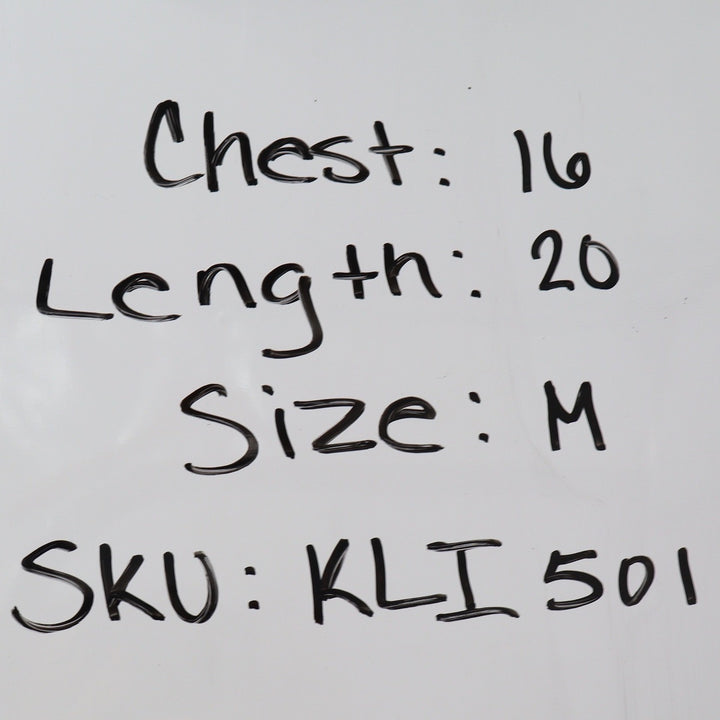 Chest: 16
Length: 20
Size: M
SKU: KLI 501